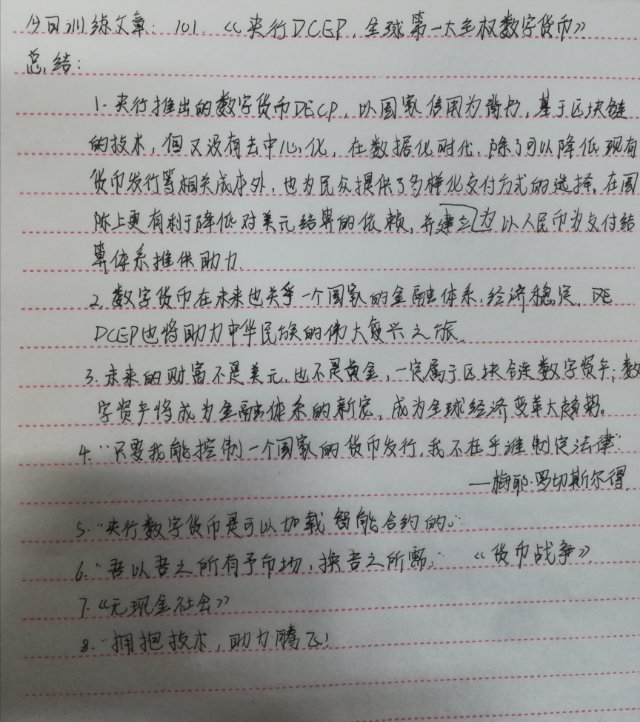 今日训练文章：101.《央行DCEP，全球第一大主权数字货币》
总结：
1.央行推出的数字货币DECP，以国家信用为背书，基于区块链
的技术，但又没有去中心化，在数据化时代，除了可以降低现有
货币发行等相关成本外，也为民众提供了多样化交付方式的选择，在国
际上更有利于降低对美元结算的依赖，并建立为以人民币为交付结
算体系推供助力.
2.数字货币在未来也关乎一个国家的金融体系、经济稳定，DE
DCEP也将助力中华民族的伟大复兴之旅。
3.未来的财富不是美元，也不是黄金，一定属于区块链数字资产；数
字资产将成为金融体系的新宠，成为全球经济变革大趋势。
4.“只要我能控制一个国家的货币发行，我不在乎谁制定法律”
—梅耶·罗切斯尔得
5.“央行数字货币是可以加载智能合约的。”
6.“吾以吾之所有予市场，换吾之所需。” 《货币战争》
7.《无现金社会》
8.“拥抱技术，助力腾飞！